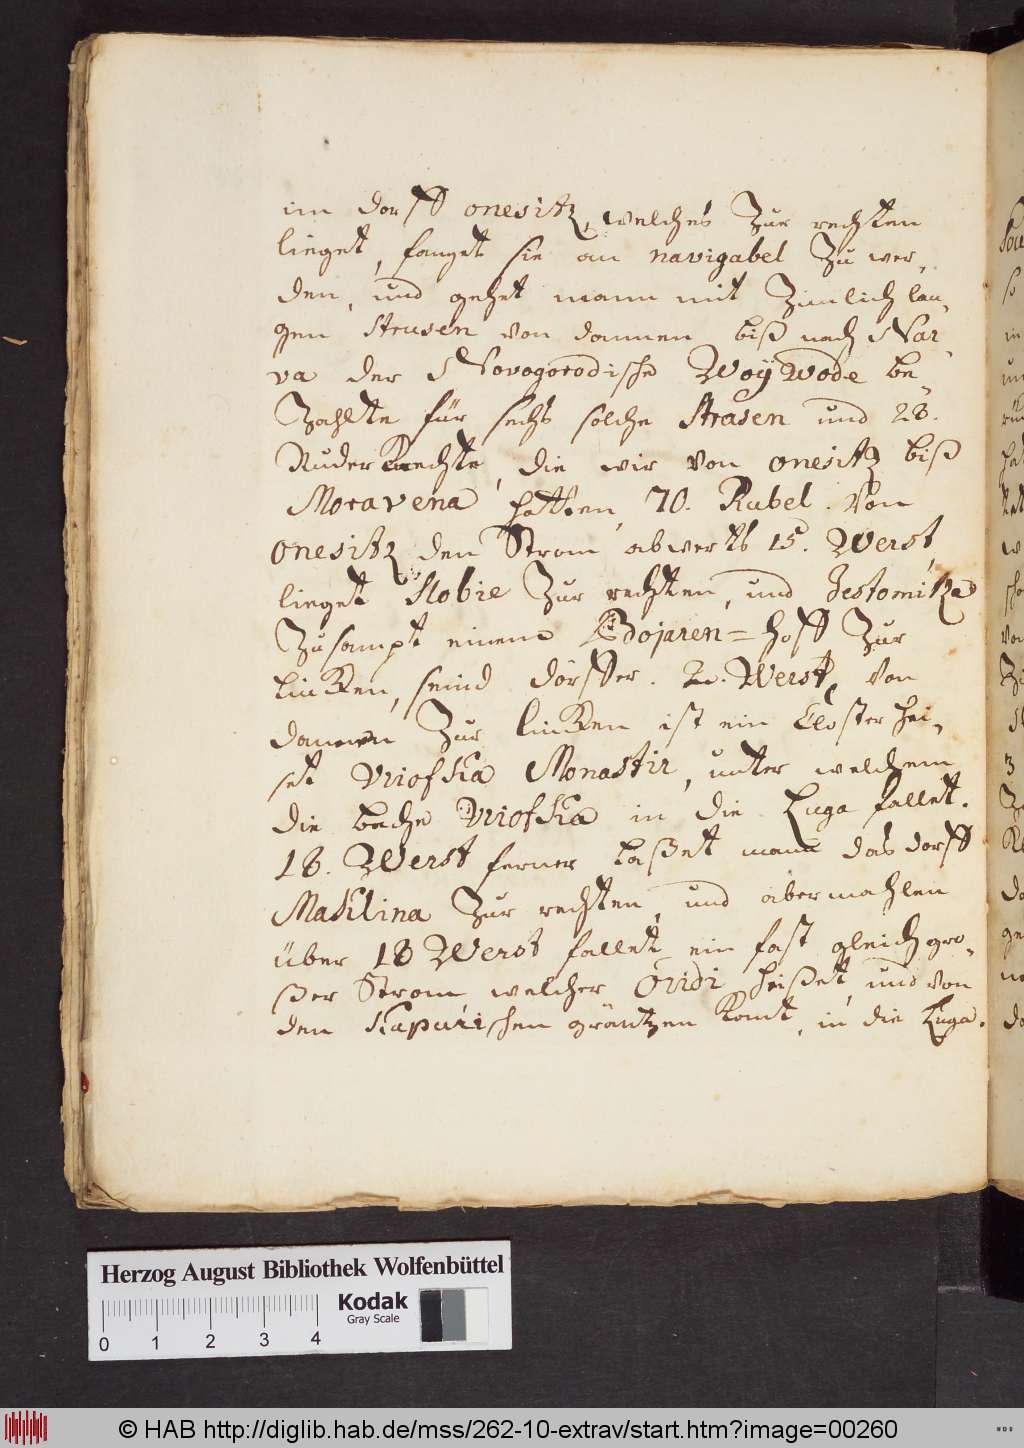 im dorff onesitz, welches Zur rechten
lieget, fanget sie an navigabel Zu wer„
den, und gehet mann mit Zimlich lan„
gen Strusen von dannen biß nach Nar„
va der Novogorodische Woÿwode be„
Zahlte für sechs solche Strusen und 28.
Ruder Knechte, die wir von onesitz biß
Moravena hatten, 70. Rubel. Von
onesitz den Strom abwerts 15. Werst,
lieget Slobie Zur rechten, und Jestomitza
Zusampt einem Bojaren=hoff Zur
lincken, seind dörffer. 2. Werst, von
dannen Zur lincken ist ein Closter hei„
set Vriofska Monastir, unter welchem
die beche Vriofska in die Luga fallet.
18. Werst ferner laßet mann das dorff
Maklina Zur rechten, und abermahlen
über 18 Werst fallet ein fast gleich gro„
ßer Strom welcher Oridi heißet, und von
den Kapurischen gräntzen komt, in die Luga.
Herzog August Bibliothek Wolfenbüttel
Kodak
Gray Scale
0 1 2 3 4
© HAB http://diglib.hab.de/mss/262-10-extrav/start.htm?image=00260